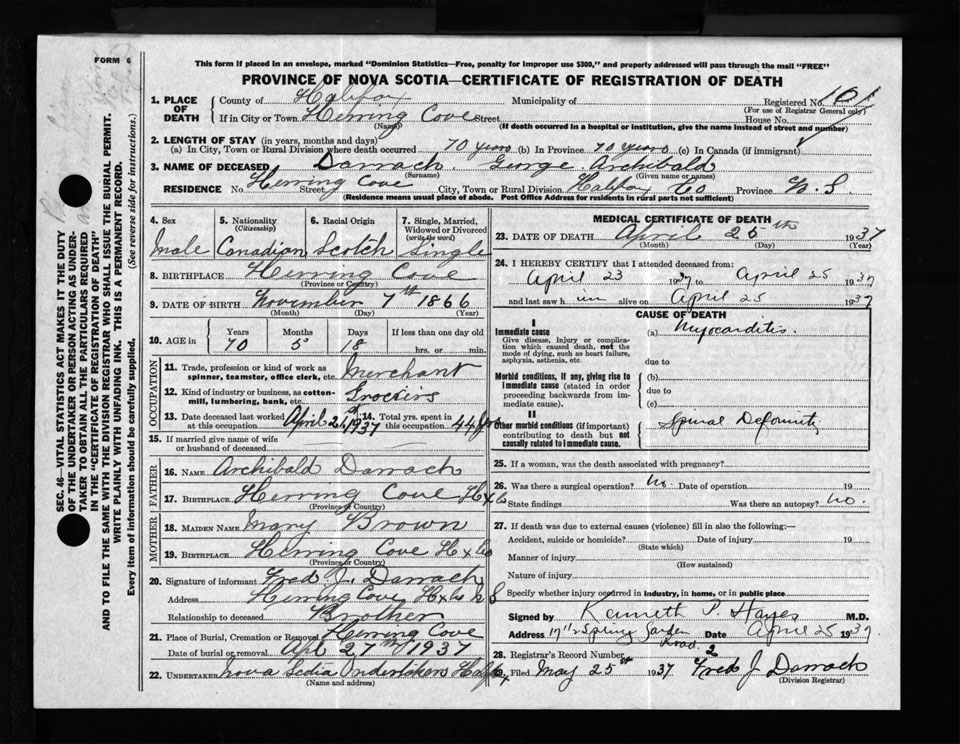 FORM 6
This form if placed in an envelope, marked "Dominion Statistics—Free, penalty for improper use $300," and properly addressed will pass through the mail "FREE"
PROVINCE OF NOVA SCOTIA—CERTIFICATE OF REGISTRATION OF DEATH
1. PLACE OF DEATH
County of Halifax Municipality of Registered No. 101
(For use of Registrar General only)
If in City or Town Herring Cove Street House No.
(Name) (If death occurred in a hospital or institution, give the name instead of street and number)
2. LENGTH OF STAY (in years, months and days)
(a) In City, Town or Rural Division where death occurred 70 years (b) In Province 70 years (c) In Canada (if immigrant)
3. NAME OF DECEASED Darrach George Archibald
(Surname) (Given name or names)
RESIDENCE No. Herring Cove Street, City, Town or Rural Division Halifax Co Province N.S.
(Residence means usual place of abode. Post Office Address for residents in rural parts not sufficient)
4. Sex 5. Nationality (Citizenship) 6. Racial Origin 7. Single, Married, Widowed or Divorced (write the word)
male Canadian Scotch Single
8. BIRTHPLACE Herring Cove
(Province or Country)
9. DATE OF BIRTH November 7th 1866
(Month) (Day) (Year)
10. AGE in Years Months Days If less than one day old
70 5 18 hrs. or min.
OCCUPATION
11. Trade, profession or kind of work as spinner, teamster, office clerk, etc. Merchant
12. Kind of industry or business, as cotton-mill, lumbering, bank, etc.
13. Date deceased last worked at this occupation April 1937 14. Total yrs. spent in this occupation 44 yrs
15. If married give name of wife or husband of deceased
FATHER
16. NAME Archibald Darrach
17. BIRTHPLACE Herring Cove Hx Co
(Province or Country)
MOTHER
18. MAIDEN NAME Mary Brown
19. BIRTHPLACE Herring Cove Hx Co
(Province or Country)
20. Signature of informant Fred J. Darrach
Address Herring Cove Hx Co N S
Relationship to deceased Brother
21. Place of Burial, Cremation or Removal Herring Cove
Date of burial or removal Apl 27th 1937
22. UNDERTAKER Nova Scotia Undertakers Halifax
(Name and address)
MEDICAL CERTIFICATE OF DEATH
23. DATE OF DEATH April 25th 1937
(Month) (Day) (Year)
24. I HEREBY CERTIFY that I attended deceased from:
April 23 1937 to April 25 1937
and last saw him alive on April 25 1937
CAUSE OF DEATH
I
Immediate cause (a) Myocarditis.
Give disease, injury or complication which caused death, not the mode of dying, such as heart failure, asphyxia, asthenia, etc.
due to
Morbid conditions, if any, giving rise to immediate cause (stated in order proceeding backwards from immediate cause).
(b)
due to
(c)
II
Other morbid conditions (if important) contributing to death but not causally related to immediate cause.
Spinal Deformity
25. If a woman, was the death associated with pregnancy?
26. Was there a surgical operation? No. Date of operation 19
State findings Was there an autopsy? No.
27. If death was due to external causes (violence) fill in also the following:—
Accident, suicide or homicide? Date of injury 19
(State which)
Manner of injury
(How sustained)
Nature of injury
Specify whether injury occurred in industry, in home, or in public place
Signed by Kenneth P. Hayes M.D.
Address Spring Garden Road. Date April 25 1937
28. Registrar's Record Number 2
Filed May 25th 1937 Fred J Darrach
(Division Registrar)
SEC. 46—VITAL STATISTICS ACT MAKES IT THE DUTY
OF THE UNDERTAKER OR PERSON ACTING AS UNDERTAKER TO OBTAIN ALL THE PARTICULARS REQUIRED
IN THE "CERTIFICATE OF REGISTRATION OF DEATH"
AND TO FILE THE SAME WITH THE DIVISION REGISTRAR WHO SHALL ISSUE THE BURIAL PERMIT.
WRITE PLAINLY WITH UNFADING INK. THIS IS A PERMANENT RECORD.
Every item of information should be carefully supplied. (See reverse side for instructions.)